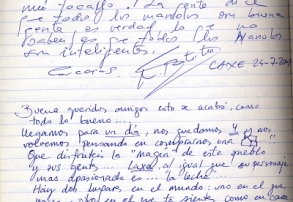 me tocaps. La gente dice
que todos los manolos son buena
gente es verdad, lo que no
saben es que Pablo los Manolos
son inteligentes.
Gracias
CAXE 24-7-20
Bueno queridos amigos esto se acabó, como
todo lo bueno....!
Llegamos para un día, nos quedamos 4 y nos
volvemos pensando en comprarnos una
Que disfruteis la "magia" de este pueblo
y sus gentes... Laxe, al igual que su personaje
mas apasionado es.... "la leche"...
Hay dos lugares en el mundo: uno en el que
naces, y otro en el que te sientes como en casa